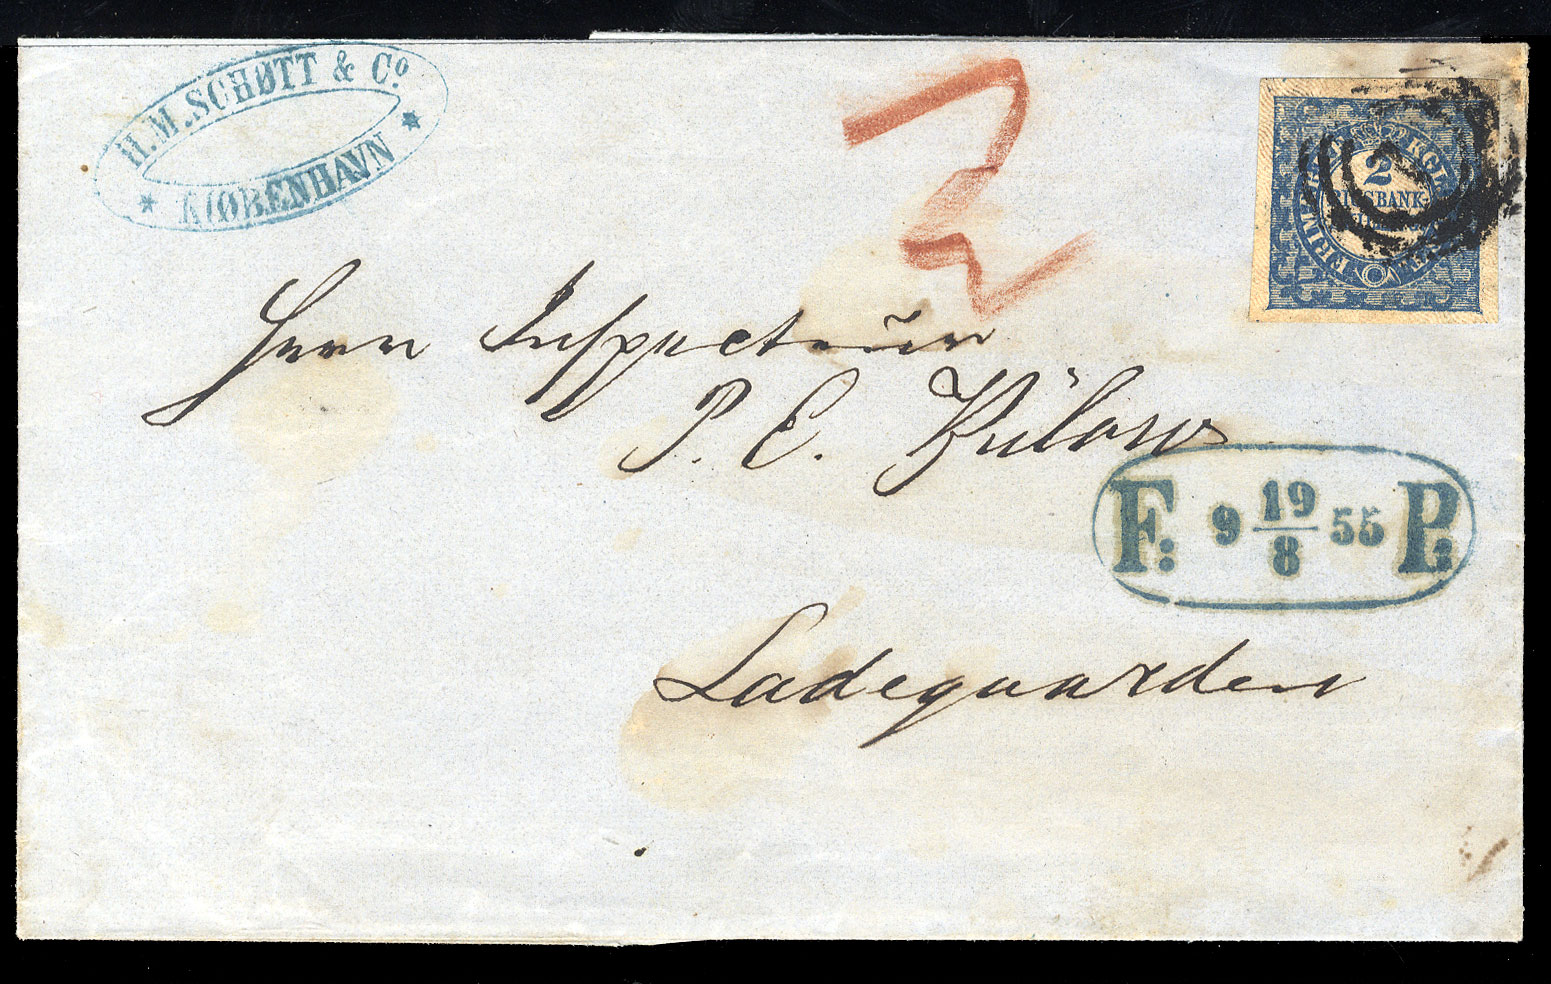 H.M. SCHØTT & Co
* KIØBENHAVN *
2
KGL
2
RIGSBANK
FRIM
Herrn Inspecteur
P. E. Bülow
F: 9 19/8 55 P:
Ladegaarden